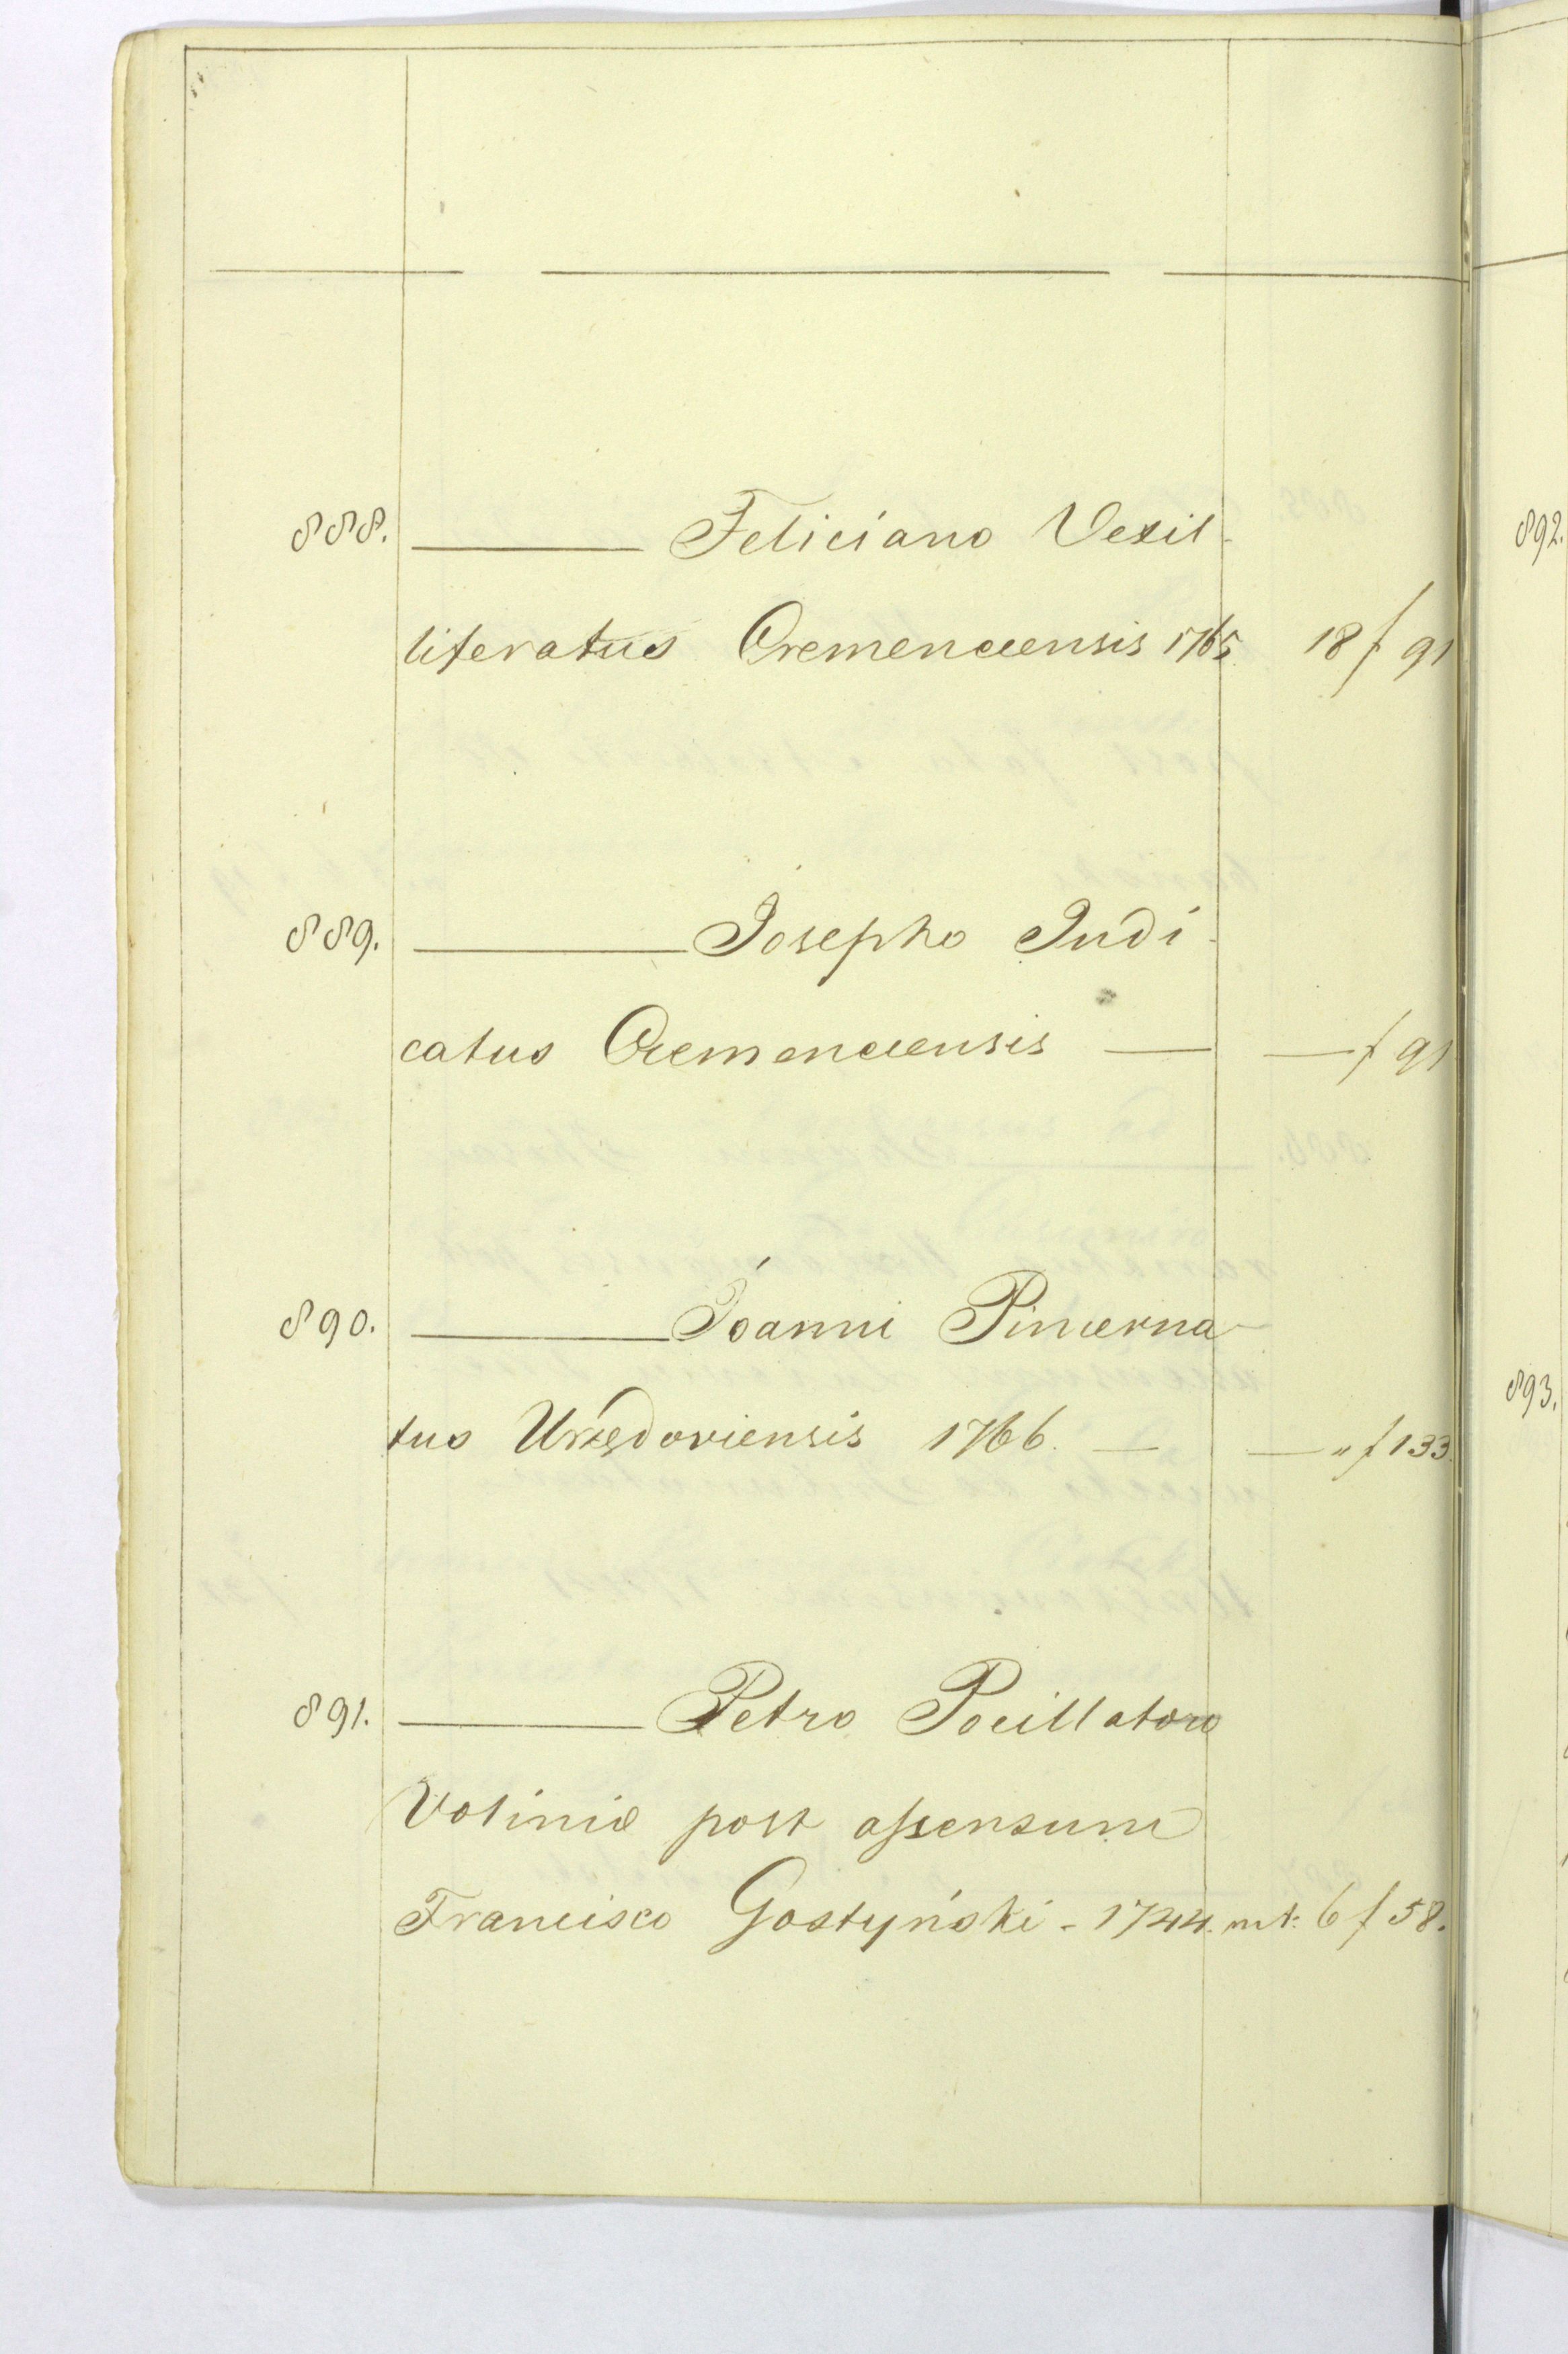 888. ——— Feliciano Vexil-
liferatus Cremenecensis 1765. 18 f 91
889. ——— Josepho Judi-
catus Cremenecensis — — f 91
890. ——— Joanni Pincerna-
tus Urzędoviensis 1766. — — " f 133.
891. ——— Petro Pocillatoro
Voliniæ post assensum
Francisco Gostyński - 1744. mt: 6 f 58.
892.
893.